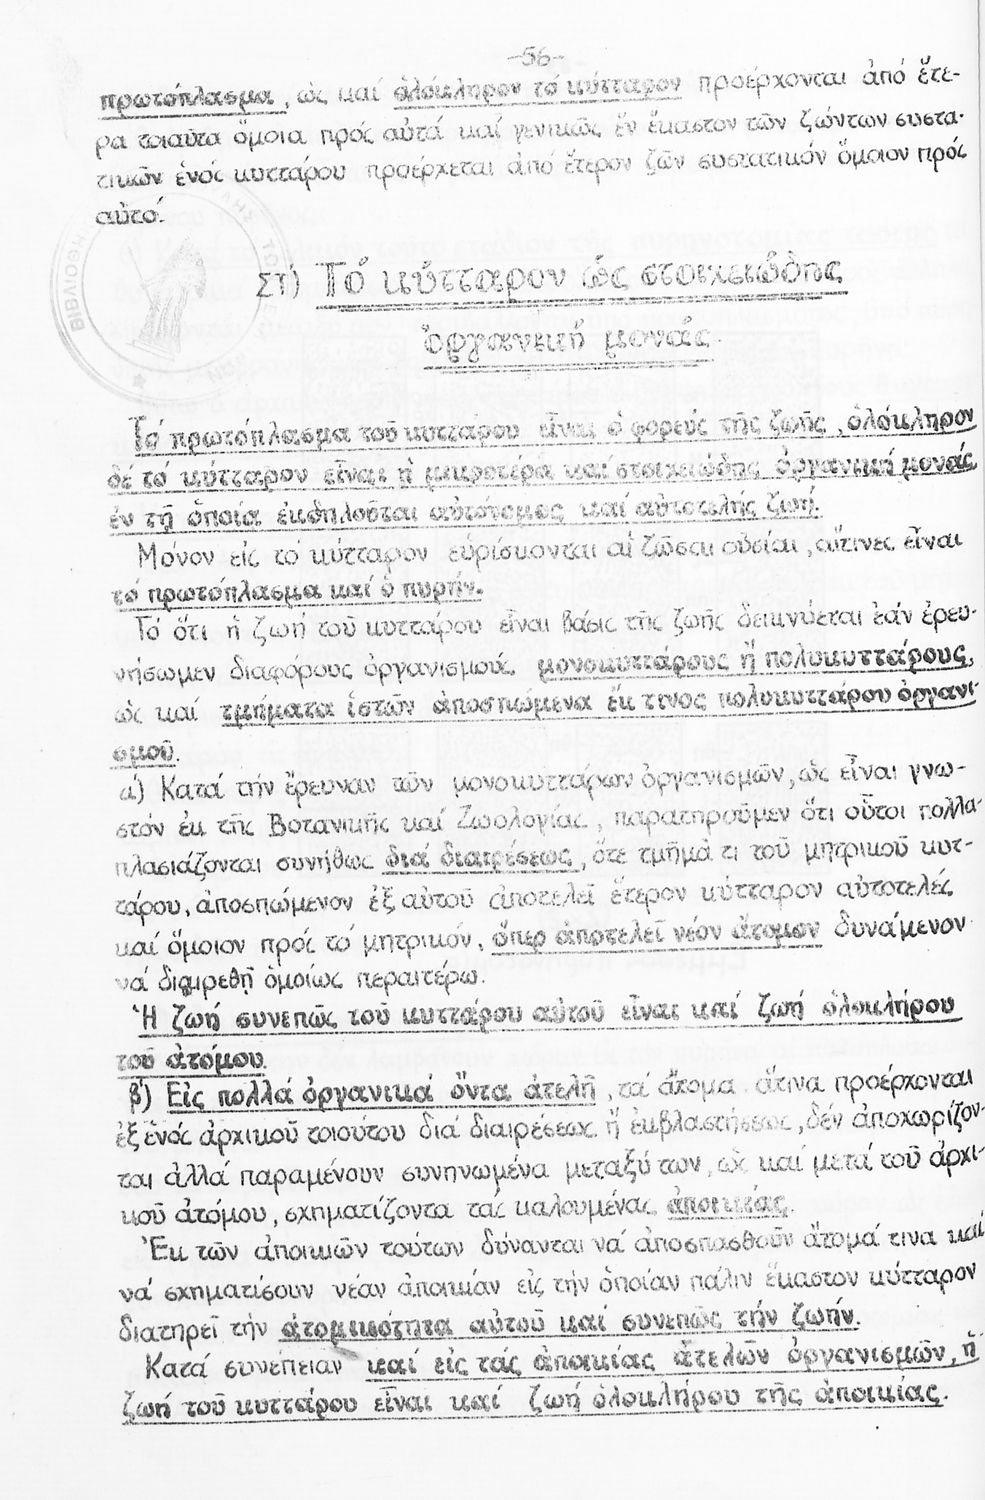 -56-
πρωτόπλασμα, ὡς καί ὁλόκληρον τό κύτταρον προέρχονται ἀπό ἕτε-
ρα τοιαῦτα ὅμοια πρός αὐτά καί γενικῶς ἕν ἕκαστον τῶν ζώντων συστα-
τικῶν ἑνός κυττάρου προέρχεται ἀπό ἕτερον ζῶν συστατικόν ὅμοιον πρός
αὐτό.
ΣΤ) Τό κύτταρον ὡς στοιχειώδης
ὀργανική μονάς.
Τό πρωτόπλασμα τοῦ κυττάρου εἶναι ὁ φορεύς τῆς ζωῆς, ὁλόκληρον
δέ τό κύτταρον εἶναι ἡ μικροτέρα καί στοιχειώδης ὀργανική μονάς,
ἐν τῇ ὁποίᾳ ἐκδηλοῦται αὐτόνομος καί αὐτοτελής ζωή.
Μόνον εἰς τό κύτταρον εὑρίσκονται αἱ ζῶσαι οὐσίαι, αἵτινες εἶναι
τό πρωτόπλασμα καί ὁ πυρήν.
Τό ὅτι ἡ ζωή τοῦ κυττάρου εἶναι βάσις τῆς ζωῆς δεικνύεται ἐάν ἐρευ-
νήσωμεν διαφόρους ὀργανισμούς μονοκυττάρους ἤ πολυκυττάρους,
ὡς καί τμήματα ἱστῶν ἀποσπώμενα ἔκ τινος πολυκυττάρου ὀργανι-
σμοῦ.
α) Κατά τήν ἔρευναν τῶν μονοκυττάρων ὀργανισμῶν, ὡς εἶναι γνω-
στόν ἐκ τῆς Βοτανικῆς καί Ζωολογίας, παρατηροῦμεν ὅτι οὗτοι πολλα-
πλασιάζονται συνήθως διά διαιρέσεως, ὅτε τμῆμά τι τοῦ μητρικοῦ κυτ-
τάρου, ἀποσπώμενον ἐξ αὐτοῦ ἀποτελεῖ ἕτερον κύτταρον αὐτοτελές
καί ὅμοιον πρός τό μητρικόν, ὅπερ ἀποτελεῖ νέον ἄτομον δυνάμενον
νά διαιρεθῇ ὁμοίως περαιτέρω.
Ἡ ζωή συνεπῶς τοῦ κυττάρου αὐτοῦ εἶναι καί ζωή ὁλοκλήρου
τοῦ ἀτόμου.
β) Εἰς πολλά ὀργανικά ὄντα ἀτελῆ, τά ἄτομα ἅτινα προέρχονται
ἐξ ἑνός ἀρχικοῦ τοιούτου διά διαιρέσεως ἤ ἐκβλαστήσεως, δέν ἀποχωρίζον-
ται ἀλλά παραμένουν συνηνωμένα μεταξύ των, ὡς καί μετά τοῦ ἀρχι-
κοῦ ἀτόμου, σχηματίζοντα τάς καλουμένας ἀποικίας.
Ἐκ τῶν ἀποικιῶν τούτων δύνανται νά ἀποσπασθοῦν ἄτομά τινα καί
νά σχηματίσουν νέαν ἀποικίαν εἰς τήν ὁποίαν πάλιν ἕκαστον κύτταρον
διατηρεῖ τήν ἀτομικότητα αὐτοῦ καί συνεπῶς τήν ζωήν.
Κατά συνέπειαν καί εἰς τάς ἀποικίας ἀτελῶν ὀργανισμῶν, ἡ
ζωή τοῦ κυττάρου εἶναι καί ζωή ὁλοκλήρου τῆς ἀποικίας.